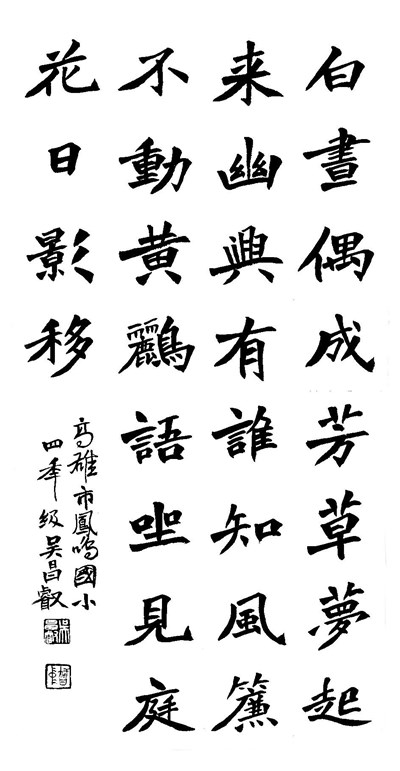 白晝偶成芳草夢起
来幽興有誰知風簾
不動黄鸝語坐見庭
花日影移
高雄市鳳鳴國小
四年級吳昌叡